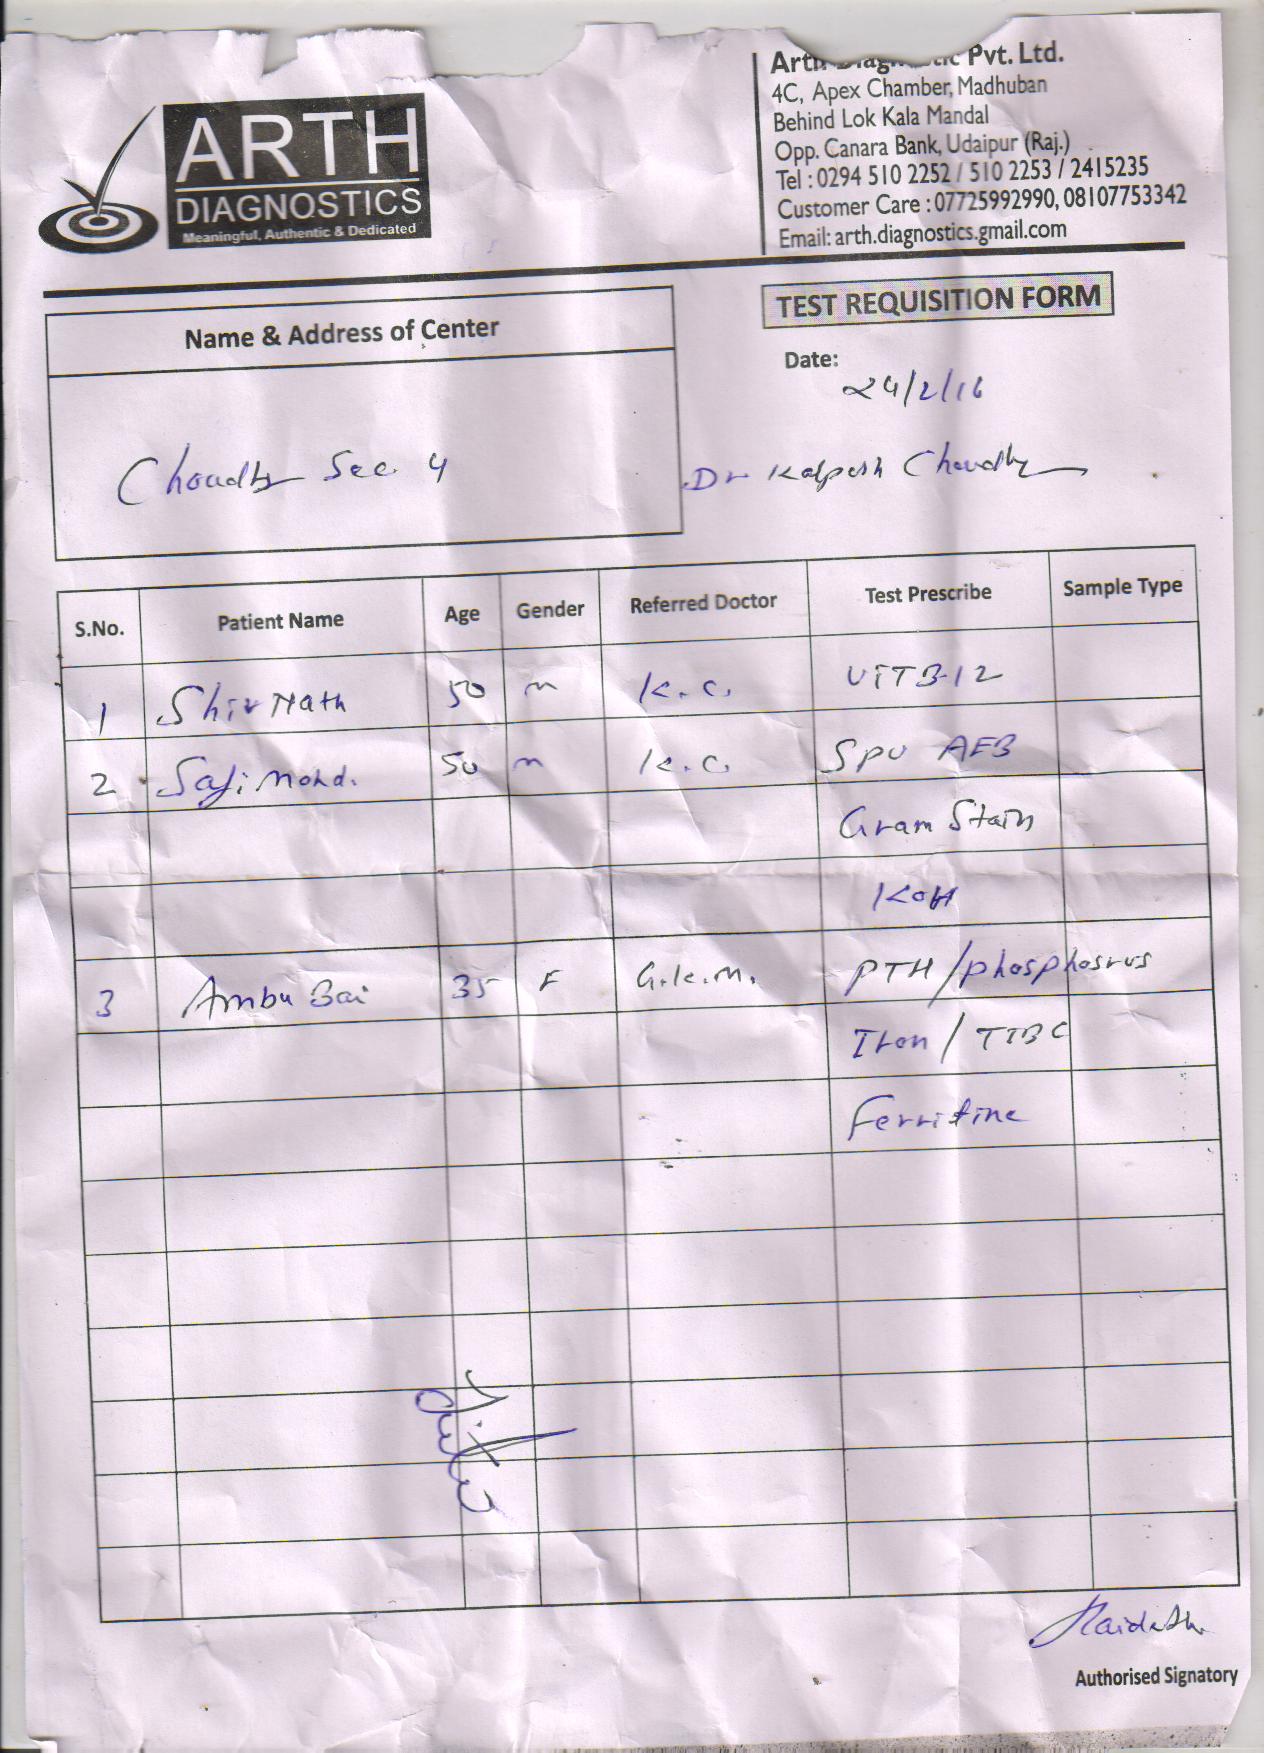 ARTH
DIAGNOSTICS
Meaningful, Authentic & Dedicated
Arth Diagnostic Pvt. Ltd.
4C, Apex Chamber, Madhuban
Behind Lok Kala Mandal
Opp. Canara Bank, Udaipur (Raj.)
Tel : 0294 510 2252 / 510 2253 / 2415235
Customer Care : 07725992990, 08107753342
Email: arth.diagnostics.gmail.com
TEST REQUISITION FORM
Name & Address of Center
Date:
24/2/16
Choudhy Sec. 4
Dr Kalpesh Choudhy
S.No. Patient Name Age Gender Referred Doctor Test Prescribe Sample Type
1 Shiv Nath 50 m K.C. VITB-12
2 Safi Mohd. 50 m K.C. SPU AFB
Gram Stain
KOH
3 Ambu Bai 35 F G.K.M. PTH/phosphosrus
Iron / TIBC
Ferritine
Authorised Signatory